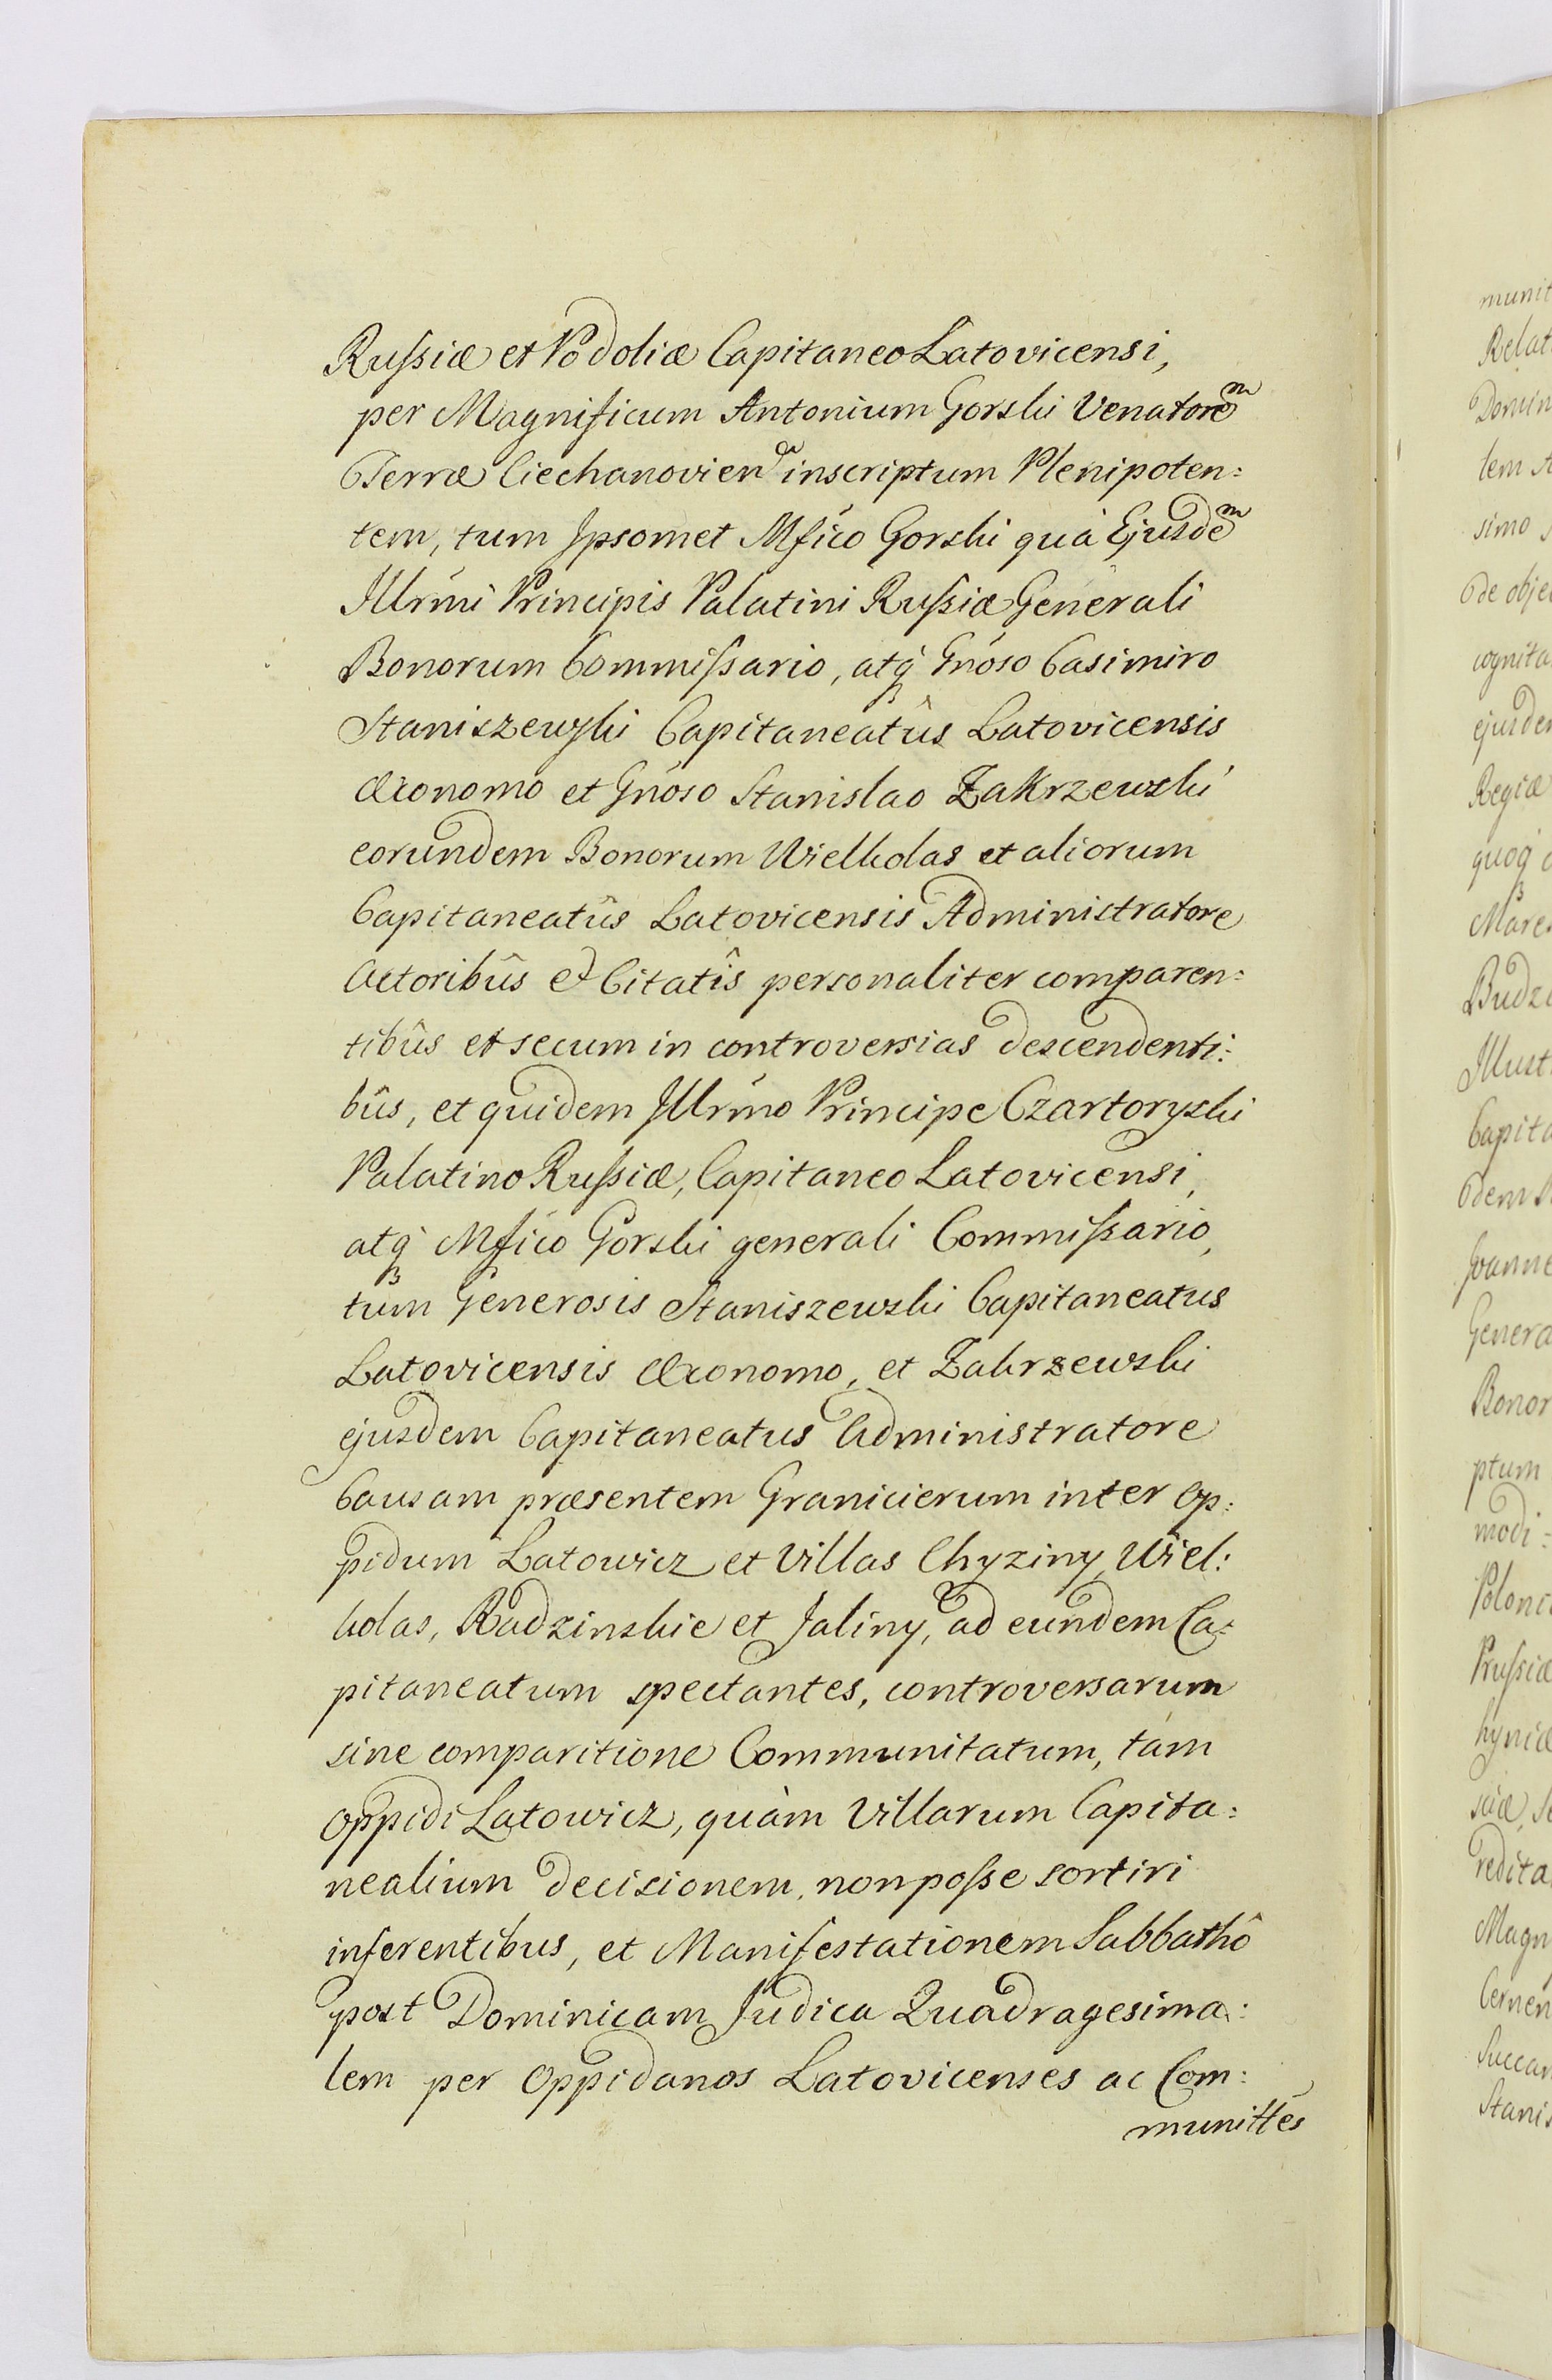 Russiæ et Podoliæ Capitaneo Latovicensi,
per Magnificum Antonium Gorski Venatorem
Terræ Ciechanovien inscriptum Plenipoten:
tem, tum Ipsomet Mfico Gorski quà Ejusdem
Illrmi Principis Palatini Russiæ Generali
Bonorum Commissario, atq Gnoso Casimiro
Staniszewski Capitaneatûs Latovicensis
Œconomo et Gnoso Stanislao Zakrzewski
eorundem Bonorum Wielkolas et aliorum
Capitaneatûs Latovicensis Administratore
Actoribûs et Citatîs personaliter comparen:
tibûs et secum in controversias descendenti:
bûs, et quidem Illrmo Principe Czartoryski
Palatino Russiæ, Capitaneo Latovicensi,
atq Mfico Gorski generali Commissario,
tum Generosis Staniszewski Capitaneatus
Latovicensis Œconomo, et Zakrzewski
ejusdem Capitaneatus Administratore
Causam præsentem Granicierum inter Op:
pidum Latowicz et Villas Chyziny, Wiel:
kolas, Radzinskie et Jaliny, ad eundem Ca:
pitaneatum spectantes, controversarum
sine comparitione Communitatum, tam
Oppidi Latowicz, quàm Villarum Capita:
nealium decisionem, non posse sortiri
inferentibus, et Manifestationem Sabbathô
post Dominicam Judica Quadragesima:
lem per Oppidanos Latovicenses ac Com:
munittes
munit
Relat
Domin
tem
simo
de obje
cognita
ejusdem
Regiæ
quoq
Mare
Budz
Illust
Capita
dem
Joanne
Genera
Bonor
ptum
modi:
Poloni
Prussiæ
hyniæ
redita
Magn
Succam
Stanis